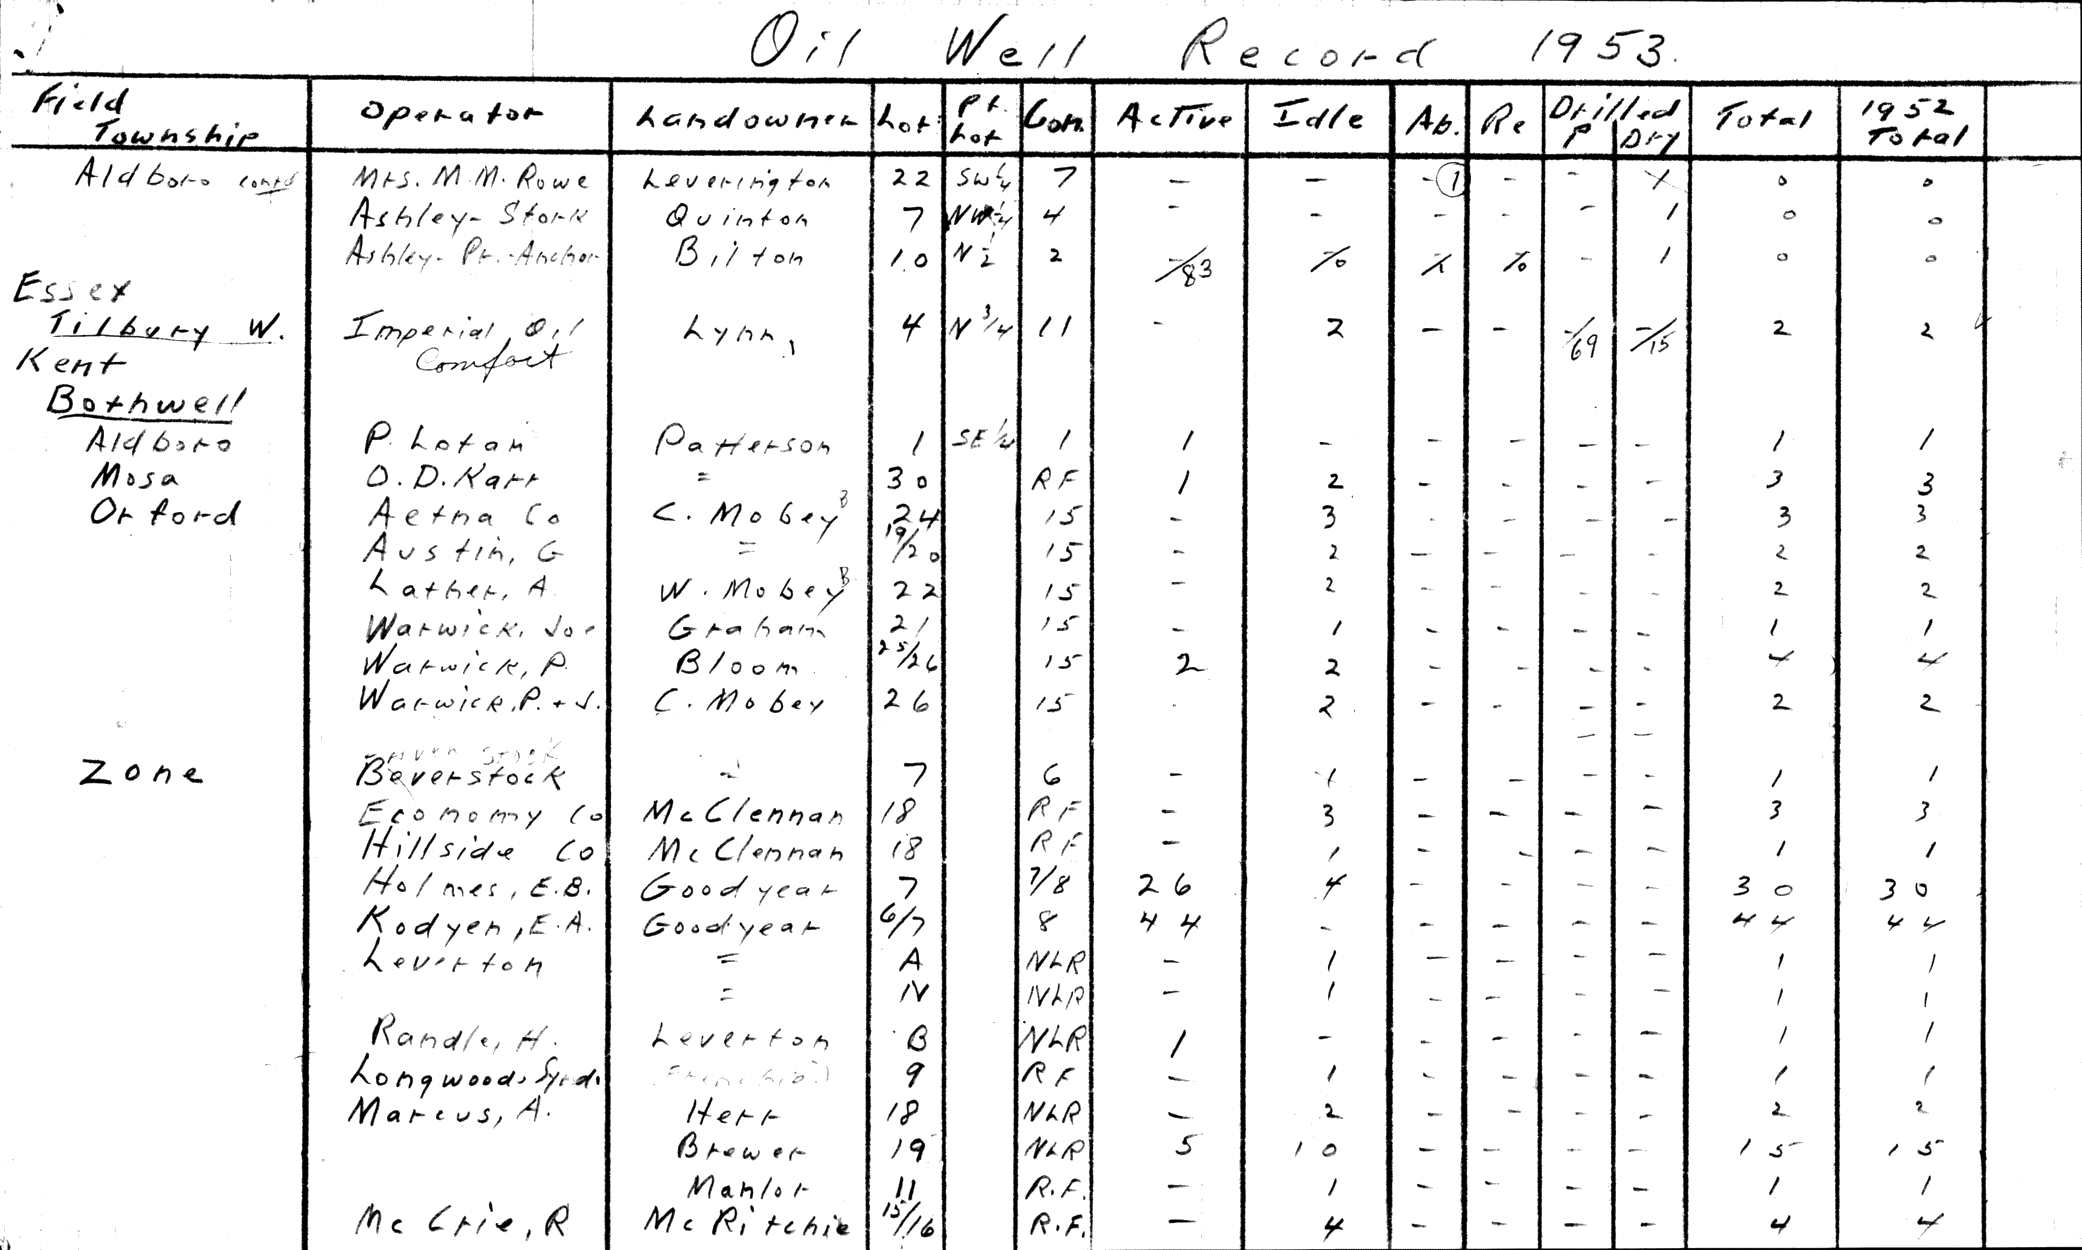 Oil Well Record 1953.
Field Township Operator Landowner Lot Pt. Lot Con. Active Idle Ab. Re Drilled P Dry Total 1952 Total
Aldboro contd Mrs. M.M. Rowe Leverington 22 SW¼ 7 - - - 1 - - 1 0 0
Ashley-Stork Quinton 7 NW¼ 4 - - - - - 1 0 0
Ashley-Pt.-Anchor Bilton 10 N½ 2 -/83 -/0 -/1 -/0 - 1 0 0
Essex
Tilbury W. Imperial Oil Lynn 4 N¾ 11 - 2 - - -/69 -/15 2 2
Comfort
Kent
Bothwell
Aldboro P. Lotan Patterson 1 SE¼ 1 1 - - - - - 1 1
Mosa O.D. Karr = 30 RF 1 2 - - - - 3 3
Orford Aetna Co C. Mobey B 24 15 - 3 - - - - 3 3
Austin, G = 19/20 15 - 2 - - - - 2 2
Lather, A. W. Mobey B 22 15 - 2 - - - - 2 2
Warwick, Joe Graham 21 15 - 1 - - - - 1 1
Warwick, P. Bloom 25/26 15 2 2 - - - - 4 4
Warwick, P. + J. C. Mobey 26 15 2 - - - - 2 2
Zone Beverstock = 7 6 - 1 - - - - 1 1
Economy Co McClennan 18 RF - 3 - - - - 3 3
Hillside Co McClennan 18 RF - 1 - - - - 1 1
Holmes, E.B. Goodyear 7 7/8 26 4 - - - - 30 30
Kodyen, E.A. Goodyear 6/7 8 44 - - - - - 44 44
Leverton = A NLR - 1 - - - - 1 1
= IV NLR - 1 - - - - 1 1
Randle, H. Leverton B NLR 1 - - - - - 1 1
Longwoods Synd. 9 RF - 1 - - - - 1 1
Marcus, A. Herr 18 NLR - 2 - - - - 2 2
Brewer 19 NLR 5 10 - - - - 15 15
Manlor 11 R.F. - 1 - - - - 1 1
McCrie, R McRitchie 15/16 R.F. - 4 - - - - 4 4